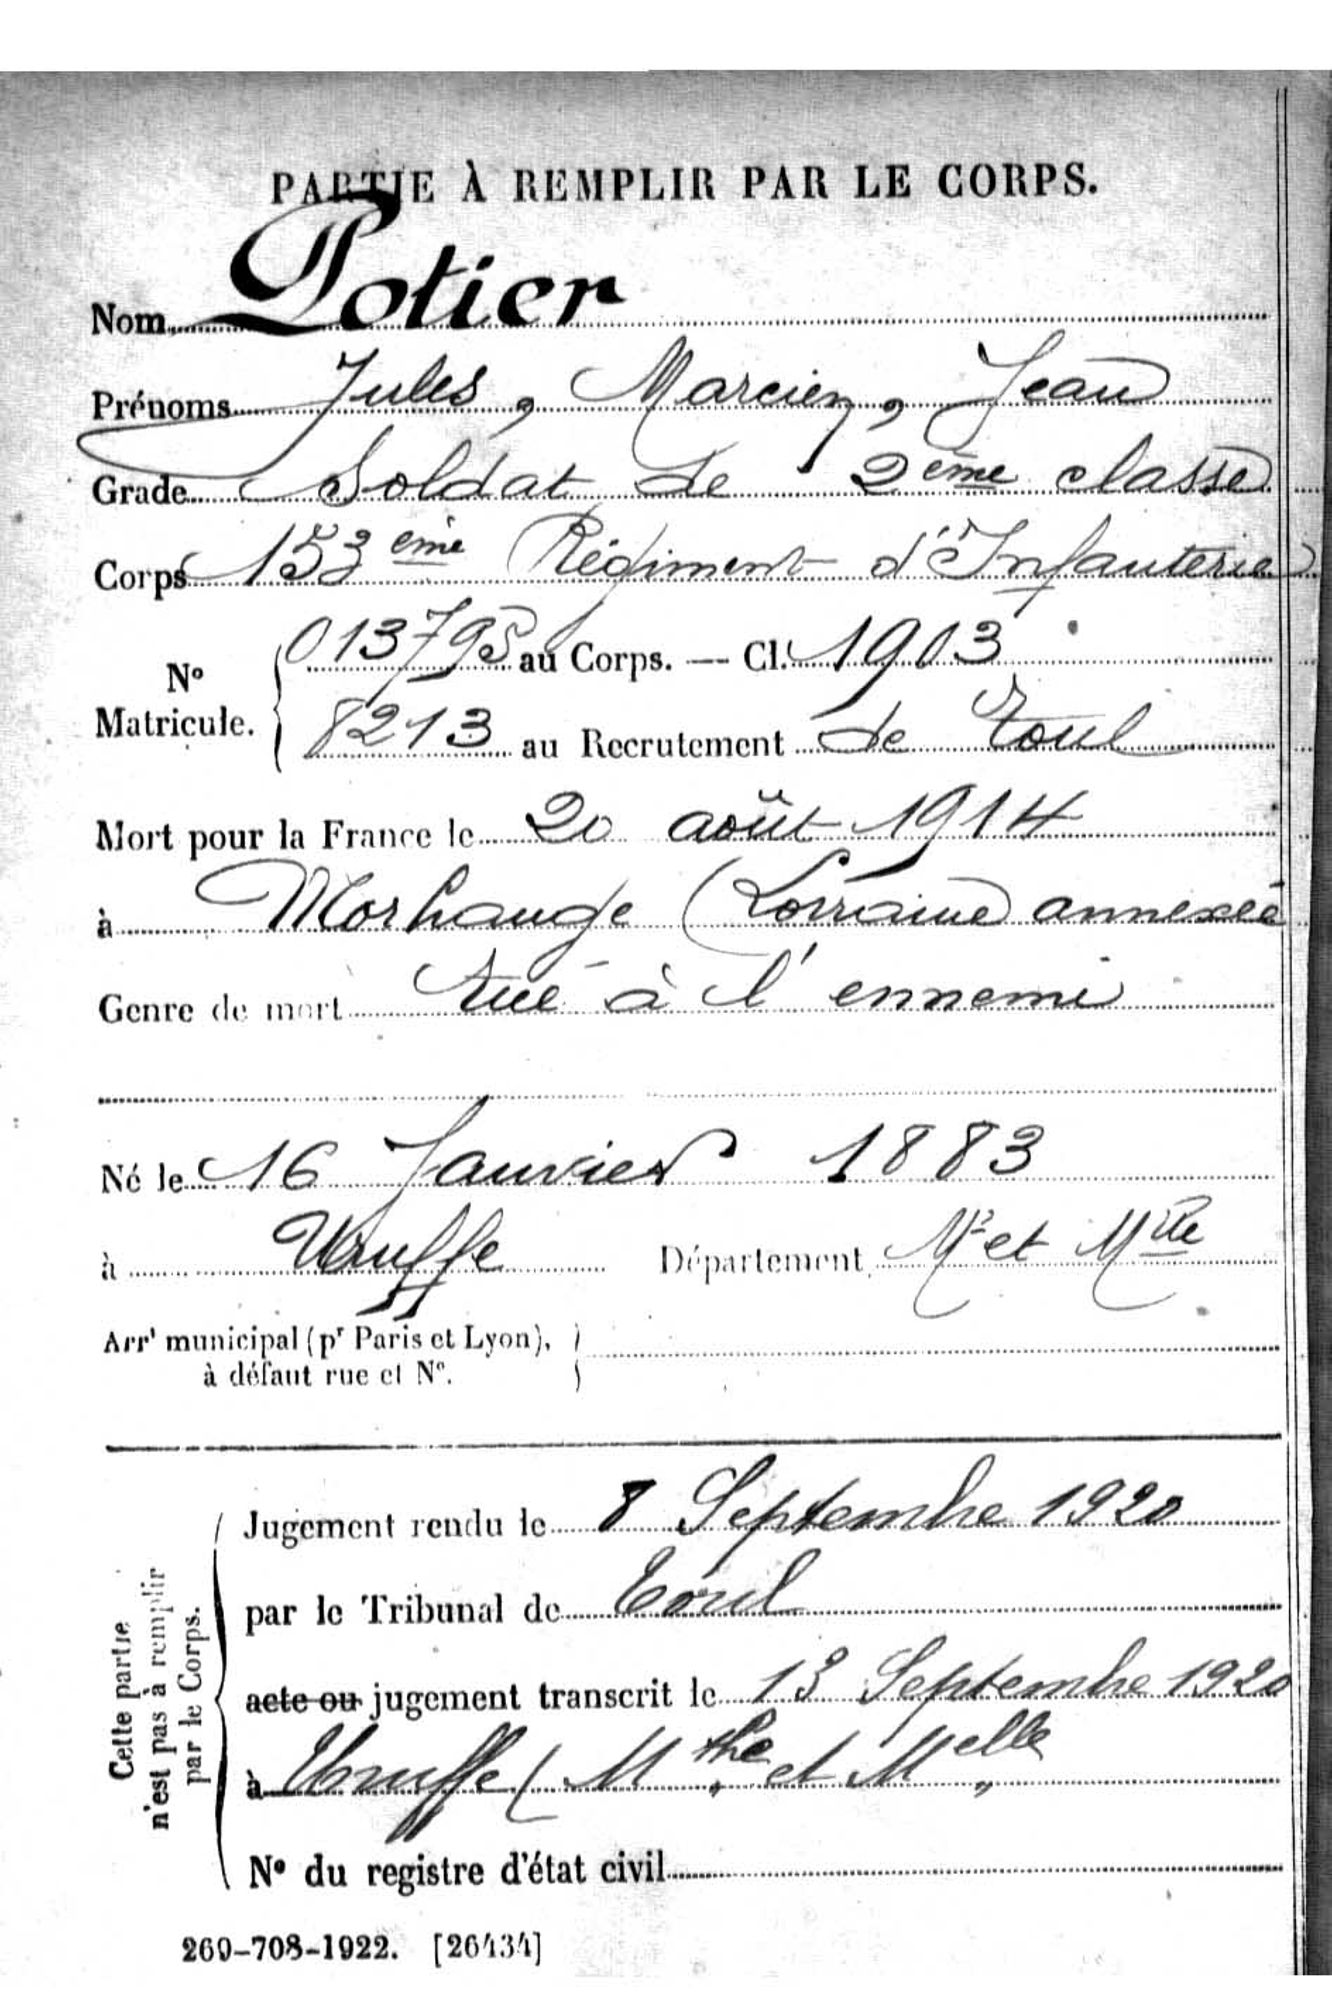 PARTIE À REMPLIR PAR LE CORPS.
Nom Potier
Prénoms Jules, Marcien, Jean
Grade Soldat de 2ème classe
Corps 153ème Régiment d'Infanterie
N° Matricule. 013795 au Corps. — Cl. 1903
8213 au Recrutement de Toul
Mort pour la France le 20 août 1914
à Morhange (Lorraine annexée
Genre de mort tué à l'ennemi
Né le 16 Janvier 1883
à Uruffe Département Mthe et Mlle
Arrt municipal (pr Paris et Lyon),
à défaut rue et N°.
Cette partie
n'est pas à remplir
par le Corps.
Jugement rendu le 8 Septembre 1920
par le Tribunal de Toul
acte ou jugement transcrit le 13 Septembre 1920
à Uruffe (Mthe et Melle
N° du registre d'état civil
269-708-1922. [26434]